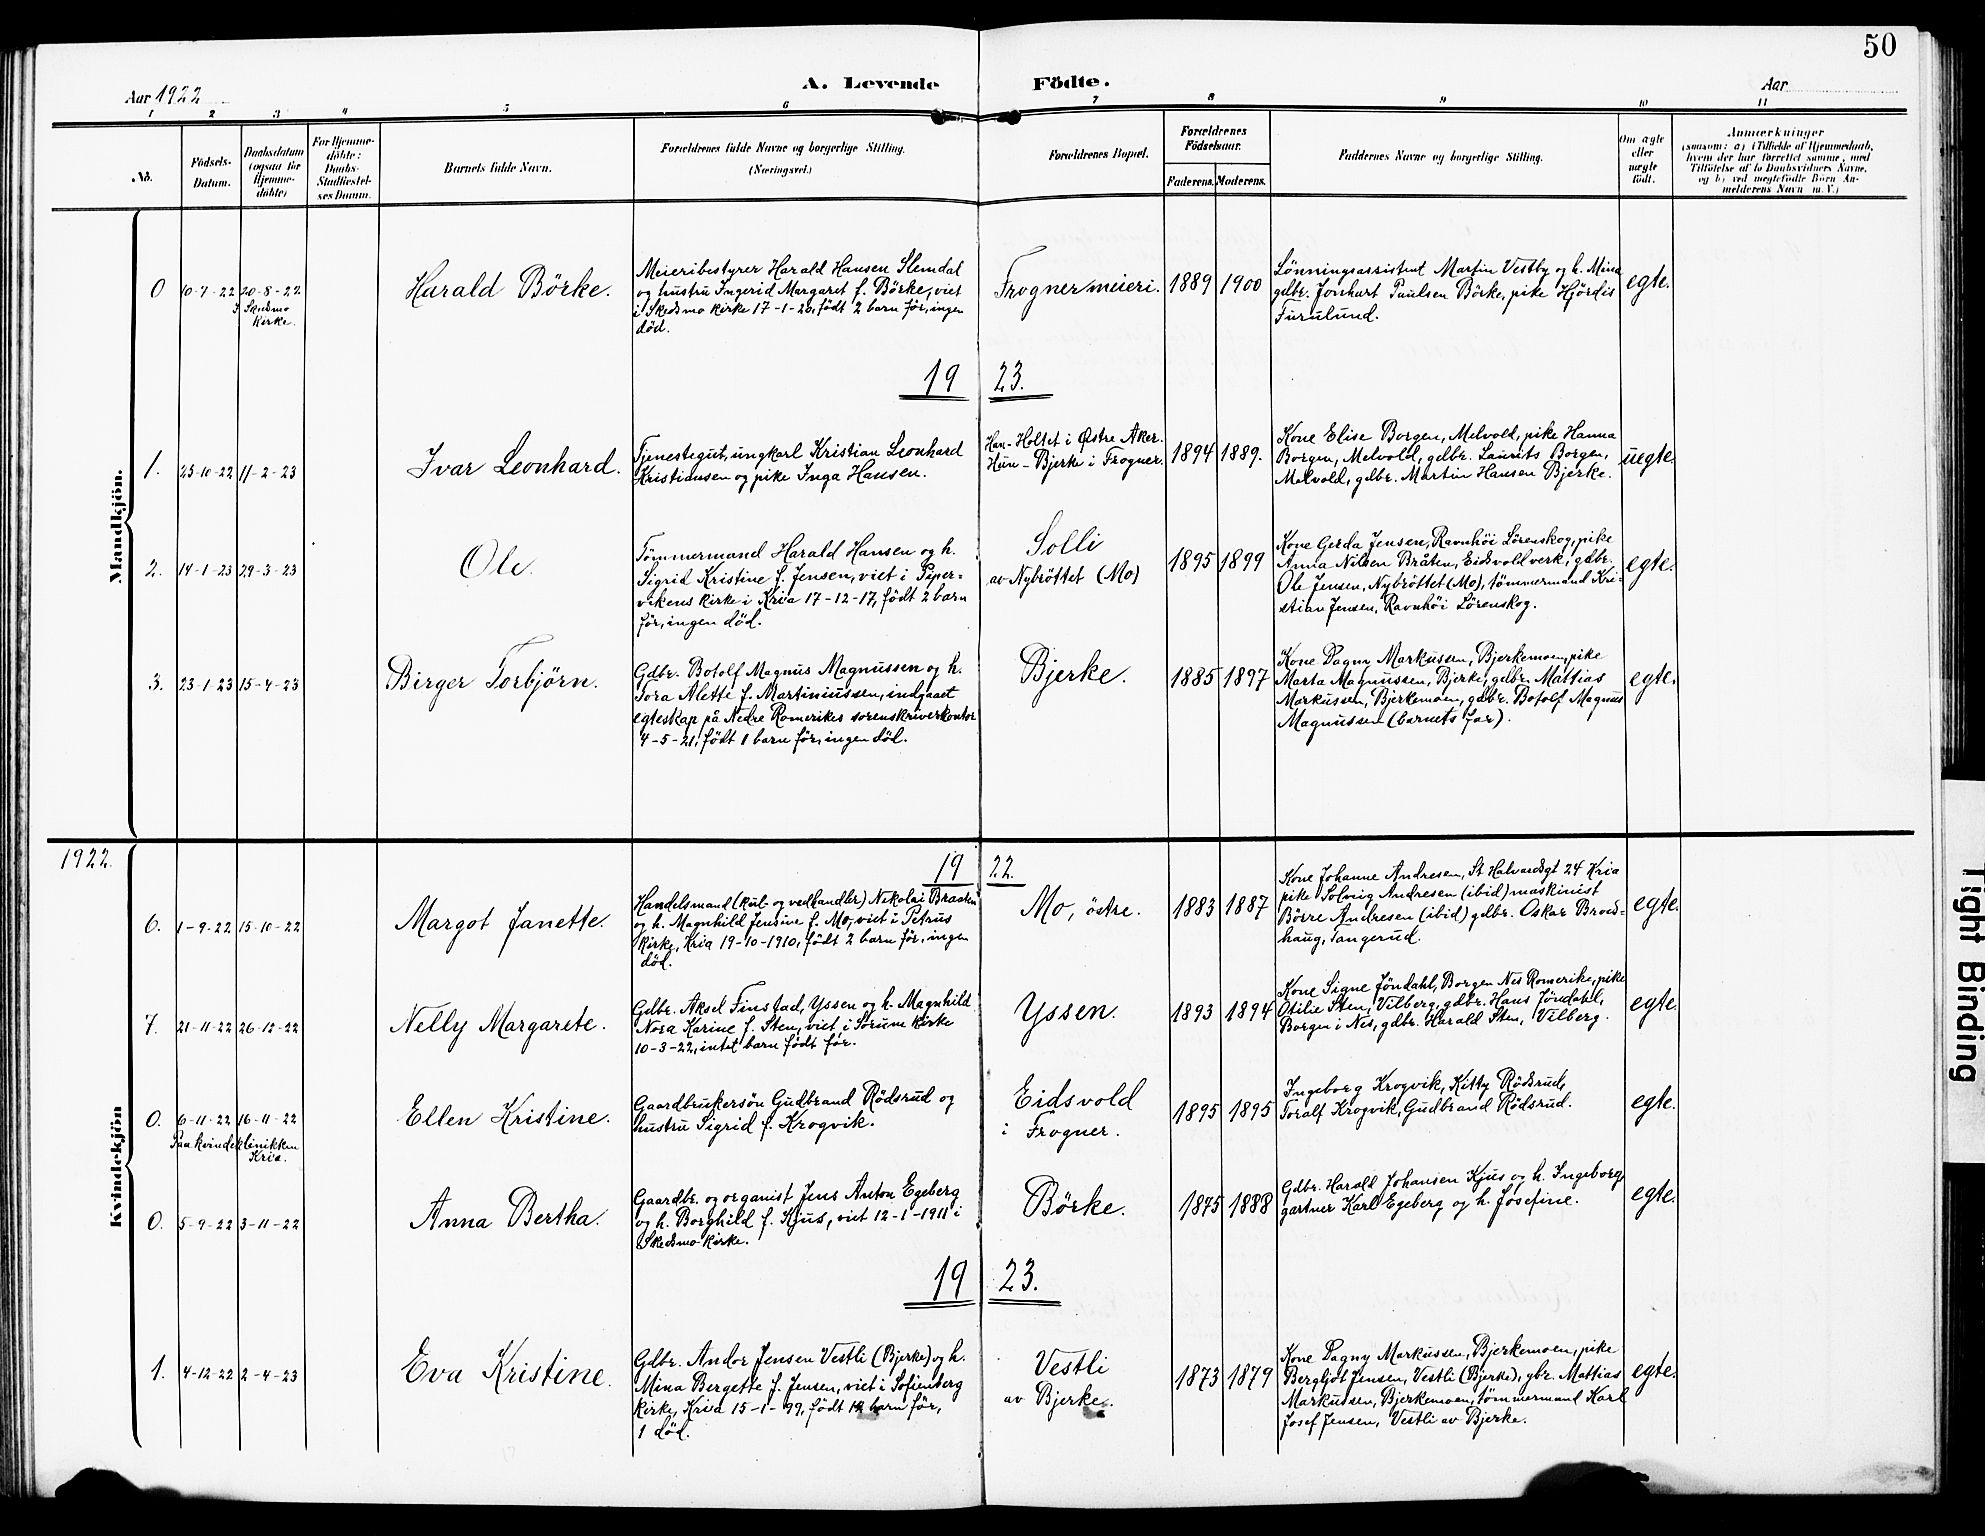 50
A. Levende Födte.
Aar 1922
Aar
1 2 3 4 5 6 7 8 9 10 11
No.
Födsels-
Datum.
Daabsdatum
(ogsaa for
Hjemme-
döbte)
For Hjemme-
döbte:
Daabs-
Stadfæstel-
ses Datum.
Barnets fulde Navn.
Forældrenes fulde Navne og borgerlige Stilling.
(Næringsvei.)
Forældrenes Bopæl.
Forældrenes
Födselsaar.
Faderens. Moderens.
Faddernes Navne og borgerlige Stilling.
Om ægte
eller
uægte
födt.
Anmærkninger
(saasom: a) (Tilfælde af Hjemmedaab,
hvem der har forrettet samme, med
Tilföielse af to Daabsvidners Navne,
og b) ved uægtefödte Börn An-
melderens Navn m. V.)
Mandkjön.
0
10-7-22
20-8-22
i Skedsmo
Kirke.
Harald Börke.
Meieribestyrer Harald Hansen Slemdal
og hustru Ingerid Margaret f. Börke, viet
i Skedsmo kirke 17-1-20, födt 2 barn för, ingen
död.
Frogner meieri.
1889
1900
Lönningsassistent Martin Vestby og h. Mina
gdbr. Jonhart Paulsen Börke, pike Hjördis
Furulund.
egte.
19 23.
1.
25-10-22
11-2-23
Ivar Leonhard.
Tjenestegut, ungkarl Kristian Leonhard
Kristiansen og pike Inga Hansen.
Han - Holtet i Østre Aker.
Hun - Bjerke i Frogner.
1894
1889.
Kone Elise Borgen, Melvold, pike Hanna
Borgen, Melvold, gdbr. Laurits Borgen,
Melvold, gdbr. Martin Hansen Bjerke.
uegte.
2.
14-1-23
29-3-23
Ole.
Tömmermand Harald Hansen og h.
Sigrid Kristine f. Jensen, viet i Piper-
vikens kirke i Kria 17-12-17, födt 2 barn
för, ingen död.
Solli
av Nybröttet (Mo)
1895
1899
Kone Gerda Jensen, Ravnhöi Lörenskog, pike
Anna Nilsen Bråten, Eidsvold verk, gdbr.
Ole Jensen, Nybröttet (Mo), tömmermand Kri-
stian Jensen, Ravnhöi Lörenskog.
egte.
3.
23-1-23
15-4-23
Birger Torbjörn.
Gdbr. Botolf Magnus Magnussen og h.
Tora Alette f. Martiniussen, indgaat
egteskap på Nedre Romerikes sorenskriverkontor
4-5-21, födt 1 barn för, ingen död.
Bjerke.
1885
1897
Kone Dagny Markussen, Bjerkemoen, pike
Marta Magnussen, Bjerke, gdbr. Mattias
Markussen, Bjerkemoen, gdbr. Botolf Magnus
Magnussen (barnets far).
egte.
1922.
19 22.
Kvindekjön
6.
1-9-22
15-10-22
Margot Janette.
Handelsmand (kul- og vedhandler) Nikolai Braaten
og h. Magnhild Jensine f. Mo, viet i Petrus
kirke, Kria 19-10-1910, födt 2 barn för, ingen
död.
Mo, östre.
1883
1887
Kone Johanne Andresen, St Halvardsgt 24 Kria
pike Solveig Andresen (ibid) maskinist
Börre Andresen (ibid) gdbr. Oskar
haug, Tangerud.
egte.
7.
21-11-22
26-12-22
Nelly Margarete.
Gdbr. Aksel Finstad, Yssen og h. Magnhild
Nora Karine f. Sten, viet i Sörum kirke
10-3-22, intet barn födt för.
Yssen.
1893
1894
Kone Signe Jöndahl, Borgen Nes Romerike, pike
Otilie Sten, Vilberg, gdbr. Hans Jöndahl,
Borgen i Nes, gdbr. Harald Sten, Vilberg.
egte.
0.
6-11-22
16-11-22
Paa kvindeklinikken
Kria.
Ellen Kristine.
Gaardbrukersön Gudbrand Rödsrud og
hustru Sigrid f. Krogvik.
Eidsvold
i Frogner.
1895
1895
Ingeborg Krogvik, Kitty Rödsrud,
Toralf Krogvik, Gudbrand Rödsrud.
egte.
0.
5-9-22
3-11-22
Anna Bertha.
Gaardbr. og organist Jens Anton Egeberg
og h. Borghild f. Kjus, viet 12-1-1911 i
Skedsmo kirke.
Börke.
1875
1888
Gdbr. Harald Johansen Kjus og h. Ingeborg
gartner Karl Egeberg og h. Josefine.
egte.
19 23.
1.
4-12-22
2-4-23
Eva Kristine.
Gdbr. Andor Jensen Vestli (Bjerke) og h.
Mina Bergette f. Jensen, viet i Sofienberg
kirke, Kria 15-1-99, födt 12 barn för,
1 död.
Vestli
av Bjerke.
1873
1879
Kone Dagny Markussen, Bjerkemoen, pike
Bergljot Jensen, Vestli (Bjerke), gbr. Mattias
Markussen, Bjerkemoen, tömmermand Karl
Josef Jensen, Vestli av Bjerke.
egte.
Tight Binding